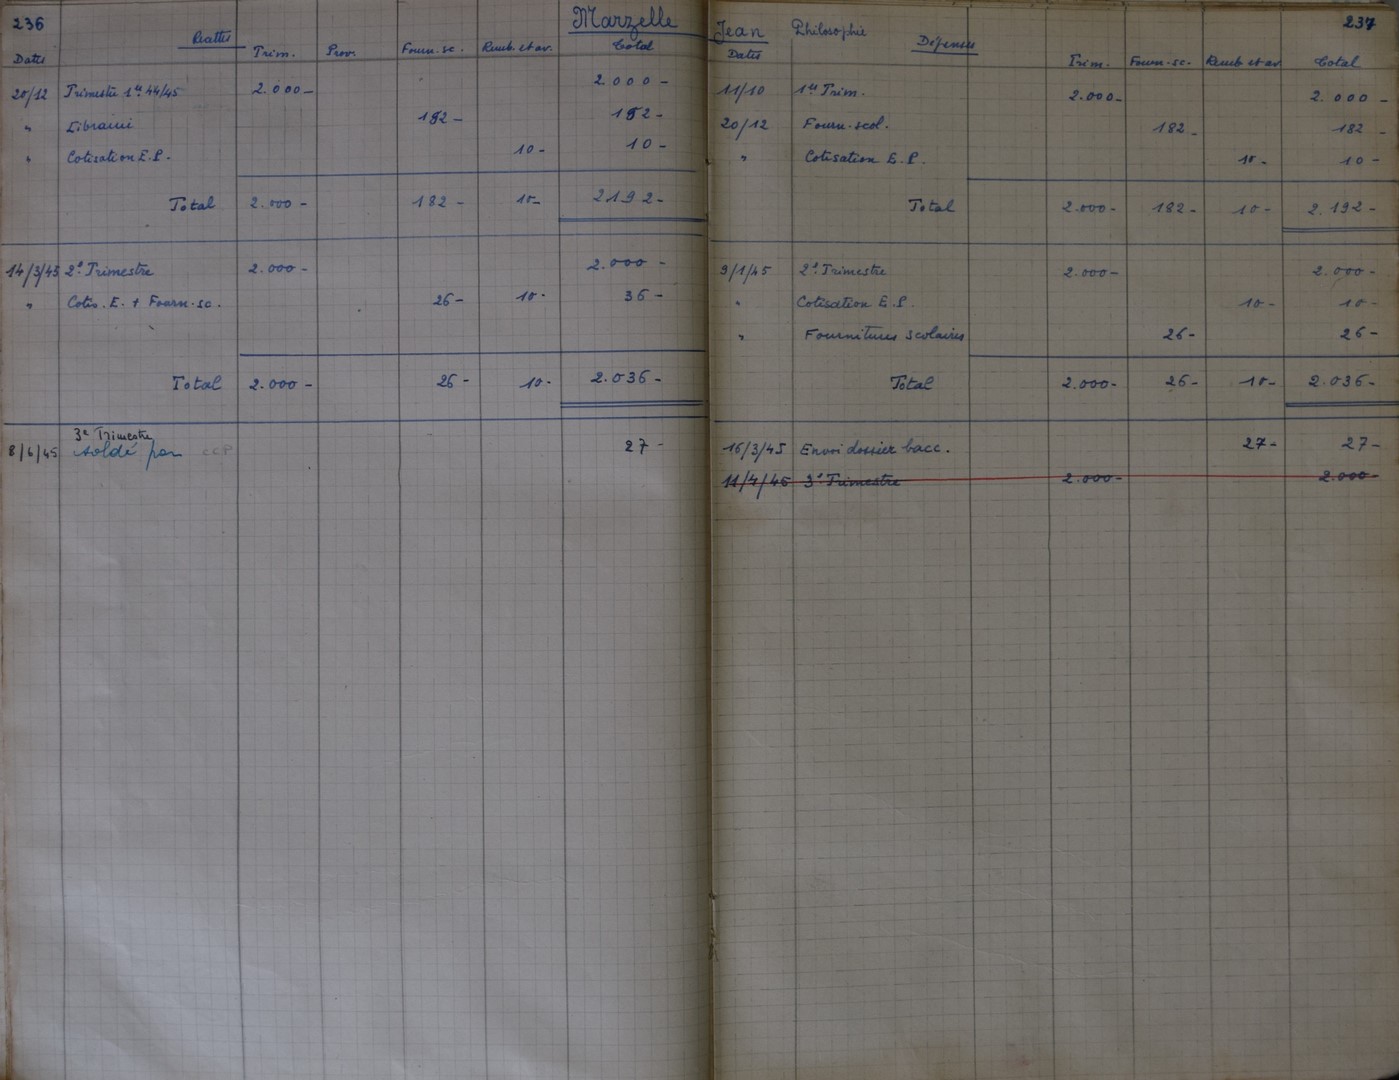 236 Marzelle
Recettes
Dates Trim. Prov. Fourn. sc. Remb. et av. Total
20/12 Trimestre 1er 44/45 2.000 - 2.000 -
" Librairie 182 - 182 -
" Cotisation E.P. 10 - 10 -
Total 2.000 - 182 - 10 - 2192 -
14/3/45 2e Trimestre 2.000 - 2.000 -
" Cotis. E. + Fourn. sc. 26 - 10 - 36 -
Total 2.000 - 26 - 10 - 2.036 -
3e Trimestre
8/6/45 soldé par CCP 27 -
Jean Philosophie 237
Dépenses
Dates Trim. Fourn. sc. Remb et av Total
11/10 1er Trim. 2.000 - 2.000 -
20/12 Fourn. scol. 182 - 182 -
" Cotisation E.P. 10 - 10 -
Total 2.000 - 182 - 10 - 2.192 -
9/1/45 2e Trimestre 2.000 - 2.000 -
" Cotisation E.P. 10 - 10 -
" Fournitures scolaires 26 - 26 -
Total 2.000 - 26 - 10 - 2.036 -
16/3/45 Envoi dossier bacc. 27 - 27 -
11/4/45 3e Trimestre 2.000 - 2.000 -